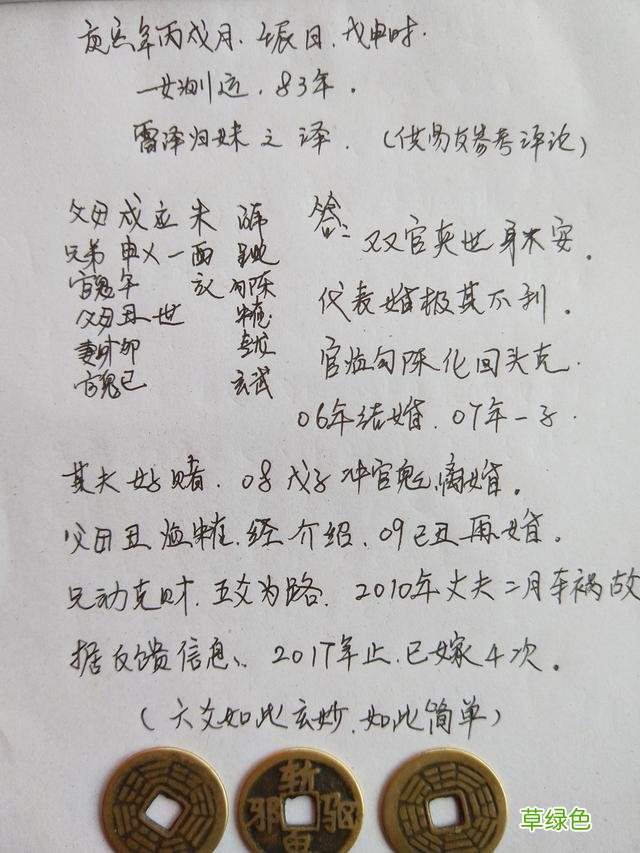 庚寅年丙戌月、壬辰日、戊申时.
一女测运. 83年.
雷泽归妹之泽. (供易友参考评论)
父母戌应朱 腾
兄弟申乂一酉
官鬼午 亥勾陈
父母丑世
妻财卯
官鬼巳 玄武
答: 双官夹世身未安.
代表婚极其不利.
官临勾陈化回头克.
06年结婚. 07年一子.
其夫好赌. 08戊子冲官鬼离婚.
父母丑临 经介绍. 09己丑再婚.
兄动克财. 五爻为路. 2010年丈夫二月车祸故
据反馈信息、2017年止. 已嫁4次.
(六爻如此玄妙. 如此简单)
斩
邪 驱
草绿色